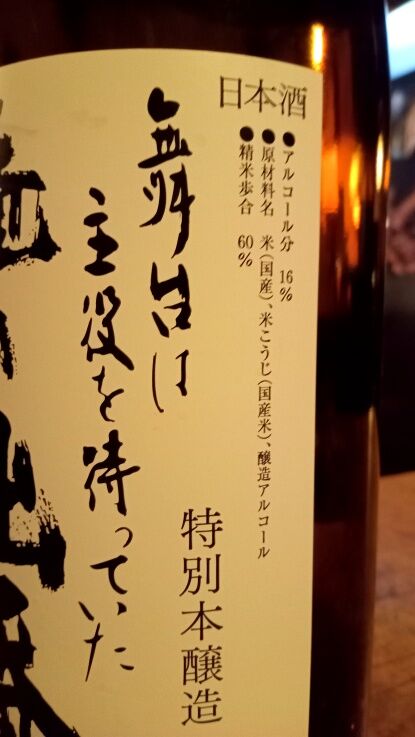 日本酒
●アルコール分 16%
●原材料名 米(国産)、米こうじ(国産米)、醸造アルコール
●精米歩合 60%
舞台は
主役を待っていた
特別本醸造